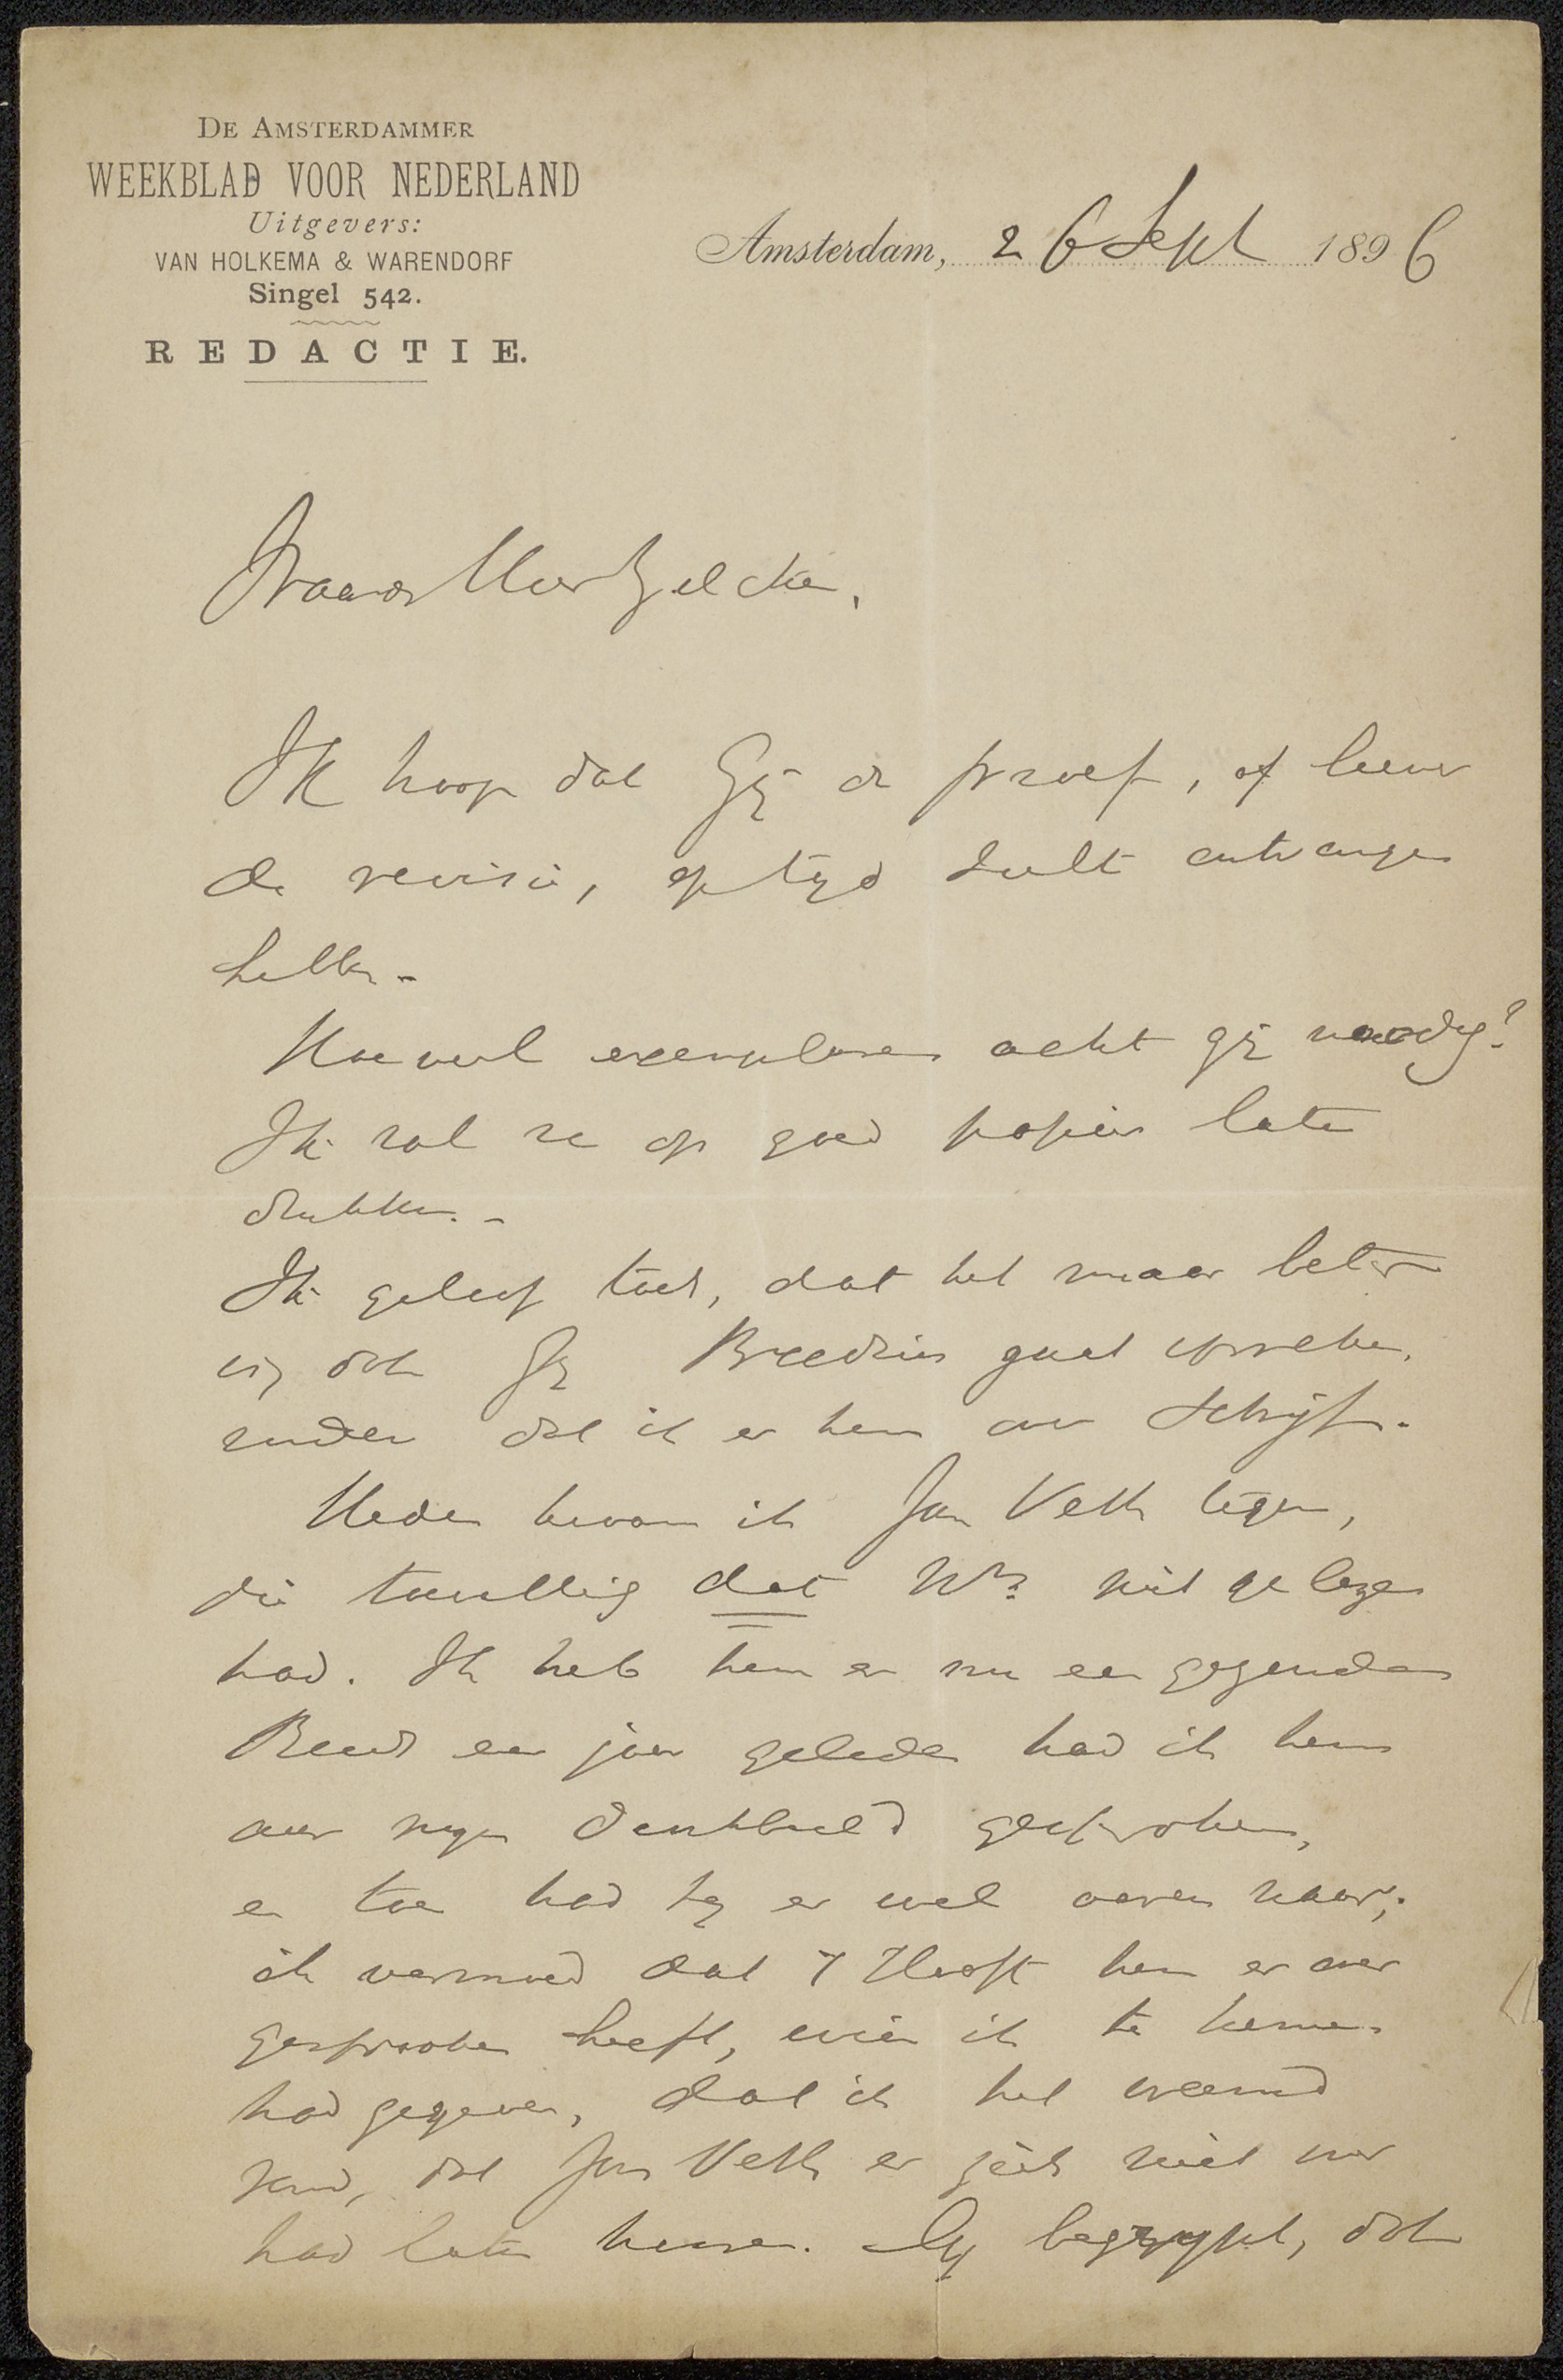 DE AMSTERDAMMER
WEEKBLAD VOOR NEDERLAND
Uitgevers:
VAN HOLKEMA & WARENDORF
Singel 542.
REDACTIE.
Amsterdam, 26 Sept 1896
Waarde Heer Zilcken,
Ik hoop dat Gij de proef, of liever
de revisie, op tijd zult ontvangen
hebben. -
Hoeveel exemplaren acht gij noodig?
Ik zal ze op goed papier laten
drukken. -
Ik geloof toch, dat het maar beter
is, dat Gij Bredius gaat spreken,
zonder dat ik er hem over schrijf.
Heden kwam ik Jan Veth tegen,
die toevallig dat Nr. niet gelezen
had. Ik heb hem er nu een gezonden
Reeds een jaar geleden had ik hem
over mijn denkbeeld gesproken,
en toen had hij er wel ooren naar;
ik vermoed dat 't Hooft hem er over
gesproken heeft, wien ik te kennen
had gegeven, dat ik het vreemd
vond, dat Jan Veth er zich niet over
had laten hooren. Gij begrijpt, dat